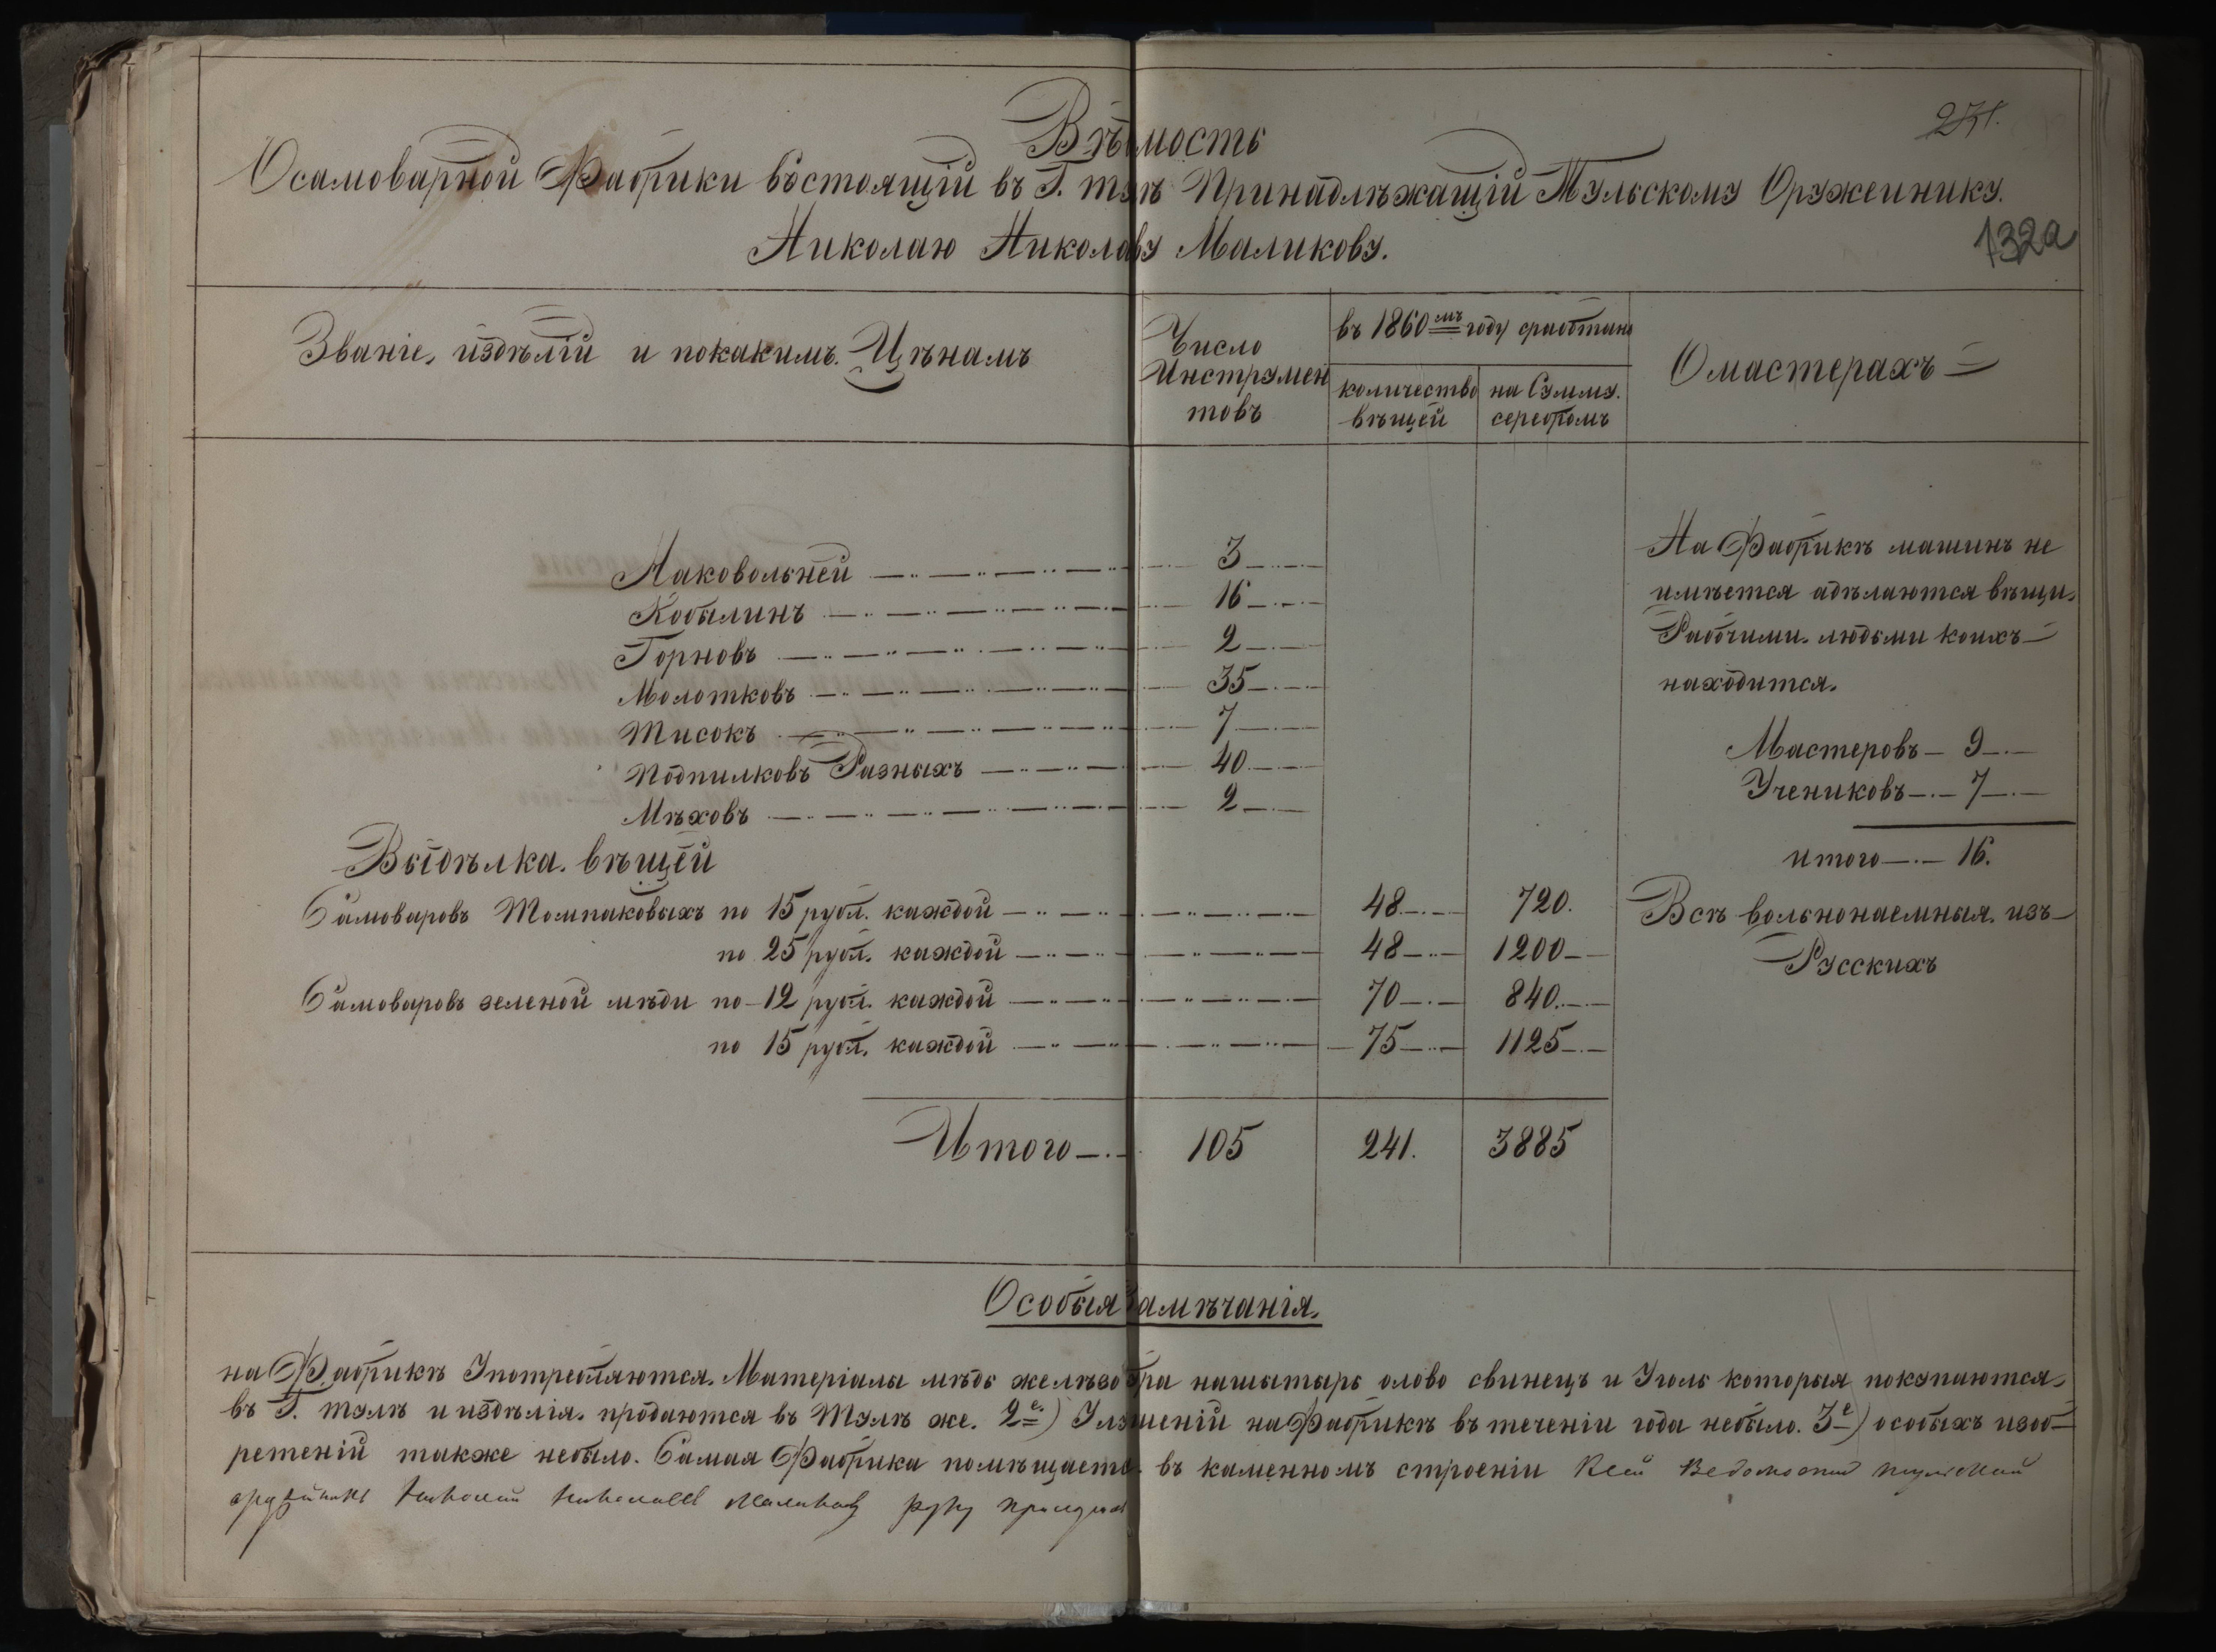 271.
Вѣдмость
Осамоварной Фабрики Состоящій въ Г. тулѣ Принадлѣжащій Тульскому Оружейнику.
132а
Николаю Николову Маликову.
Званіе, издѣлій и покакимъ. Цѣнамъ
Число Инструмен товъ
въ 1860мъ году сработано
количество вѣщей
на Сумму. серебромъ
Омастерахъ
Наковольней 3
Кобылинъ 16
Горновъ 2
Молотковъ 35
Тисокъ 7
Подпилковъ Разныхъ 40
Мѣховъ 2
На Фабрикѣ машинъ не
имѣется адѣлаются вѣщи.
Рабочими. людьми коихъ
находится.
Мастеровъ — 9
Учениковъ — 7
итого — 16.
Всѣ вольнонаемныя. изъ
Русскихъ
Выдѣлка. вѣщей
Самоваровъ Томпаковыхъ по 15 рубл. каждой 48 720.
по 25 рубл. каждой 48 1200
Самоваровъ зеленой мѣди по 12 рубл. каждой 70 840.
по 15 рубл. каждой 75 1125
Итого 105 241. 3885
Особыя амѣчанія.
на Фабрикѣ Употребляются. Матеріалы мѣдь желѣзо бра нашытырь олово свинецъ и Уголь которыя покупаются
въ Г. тулѣ и издѣлія. продаются въ Тулѣ же. 2е) Улушеній на Фабрикѣ въ теченіи года небыло. 3е) особыхъ изоб
ретеній также небыло. Самая Фабрика помѣщаетс въ каменномъ строеніи Ксей Ведомости тульской
Николай Николаев Маликов руку